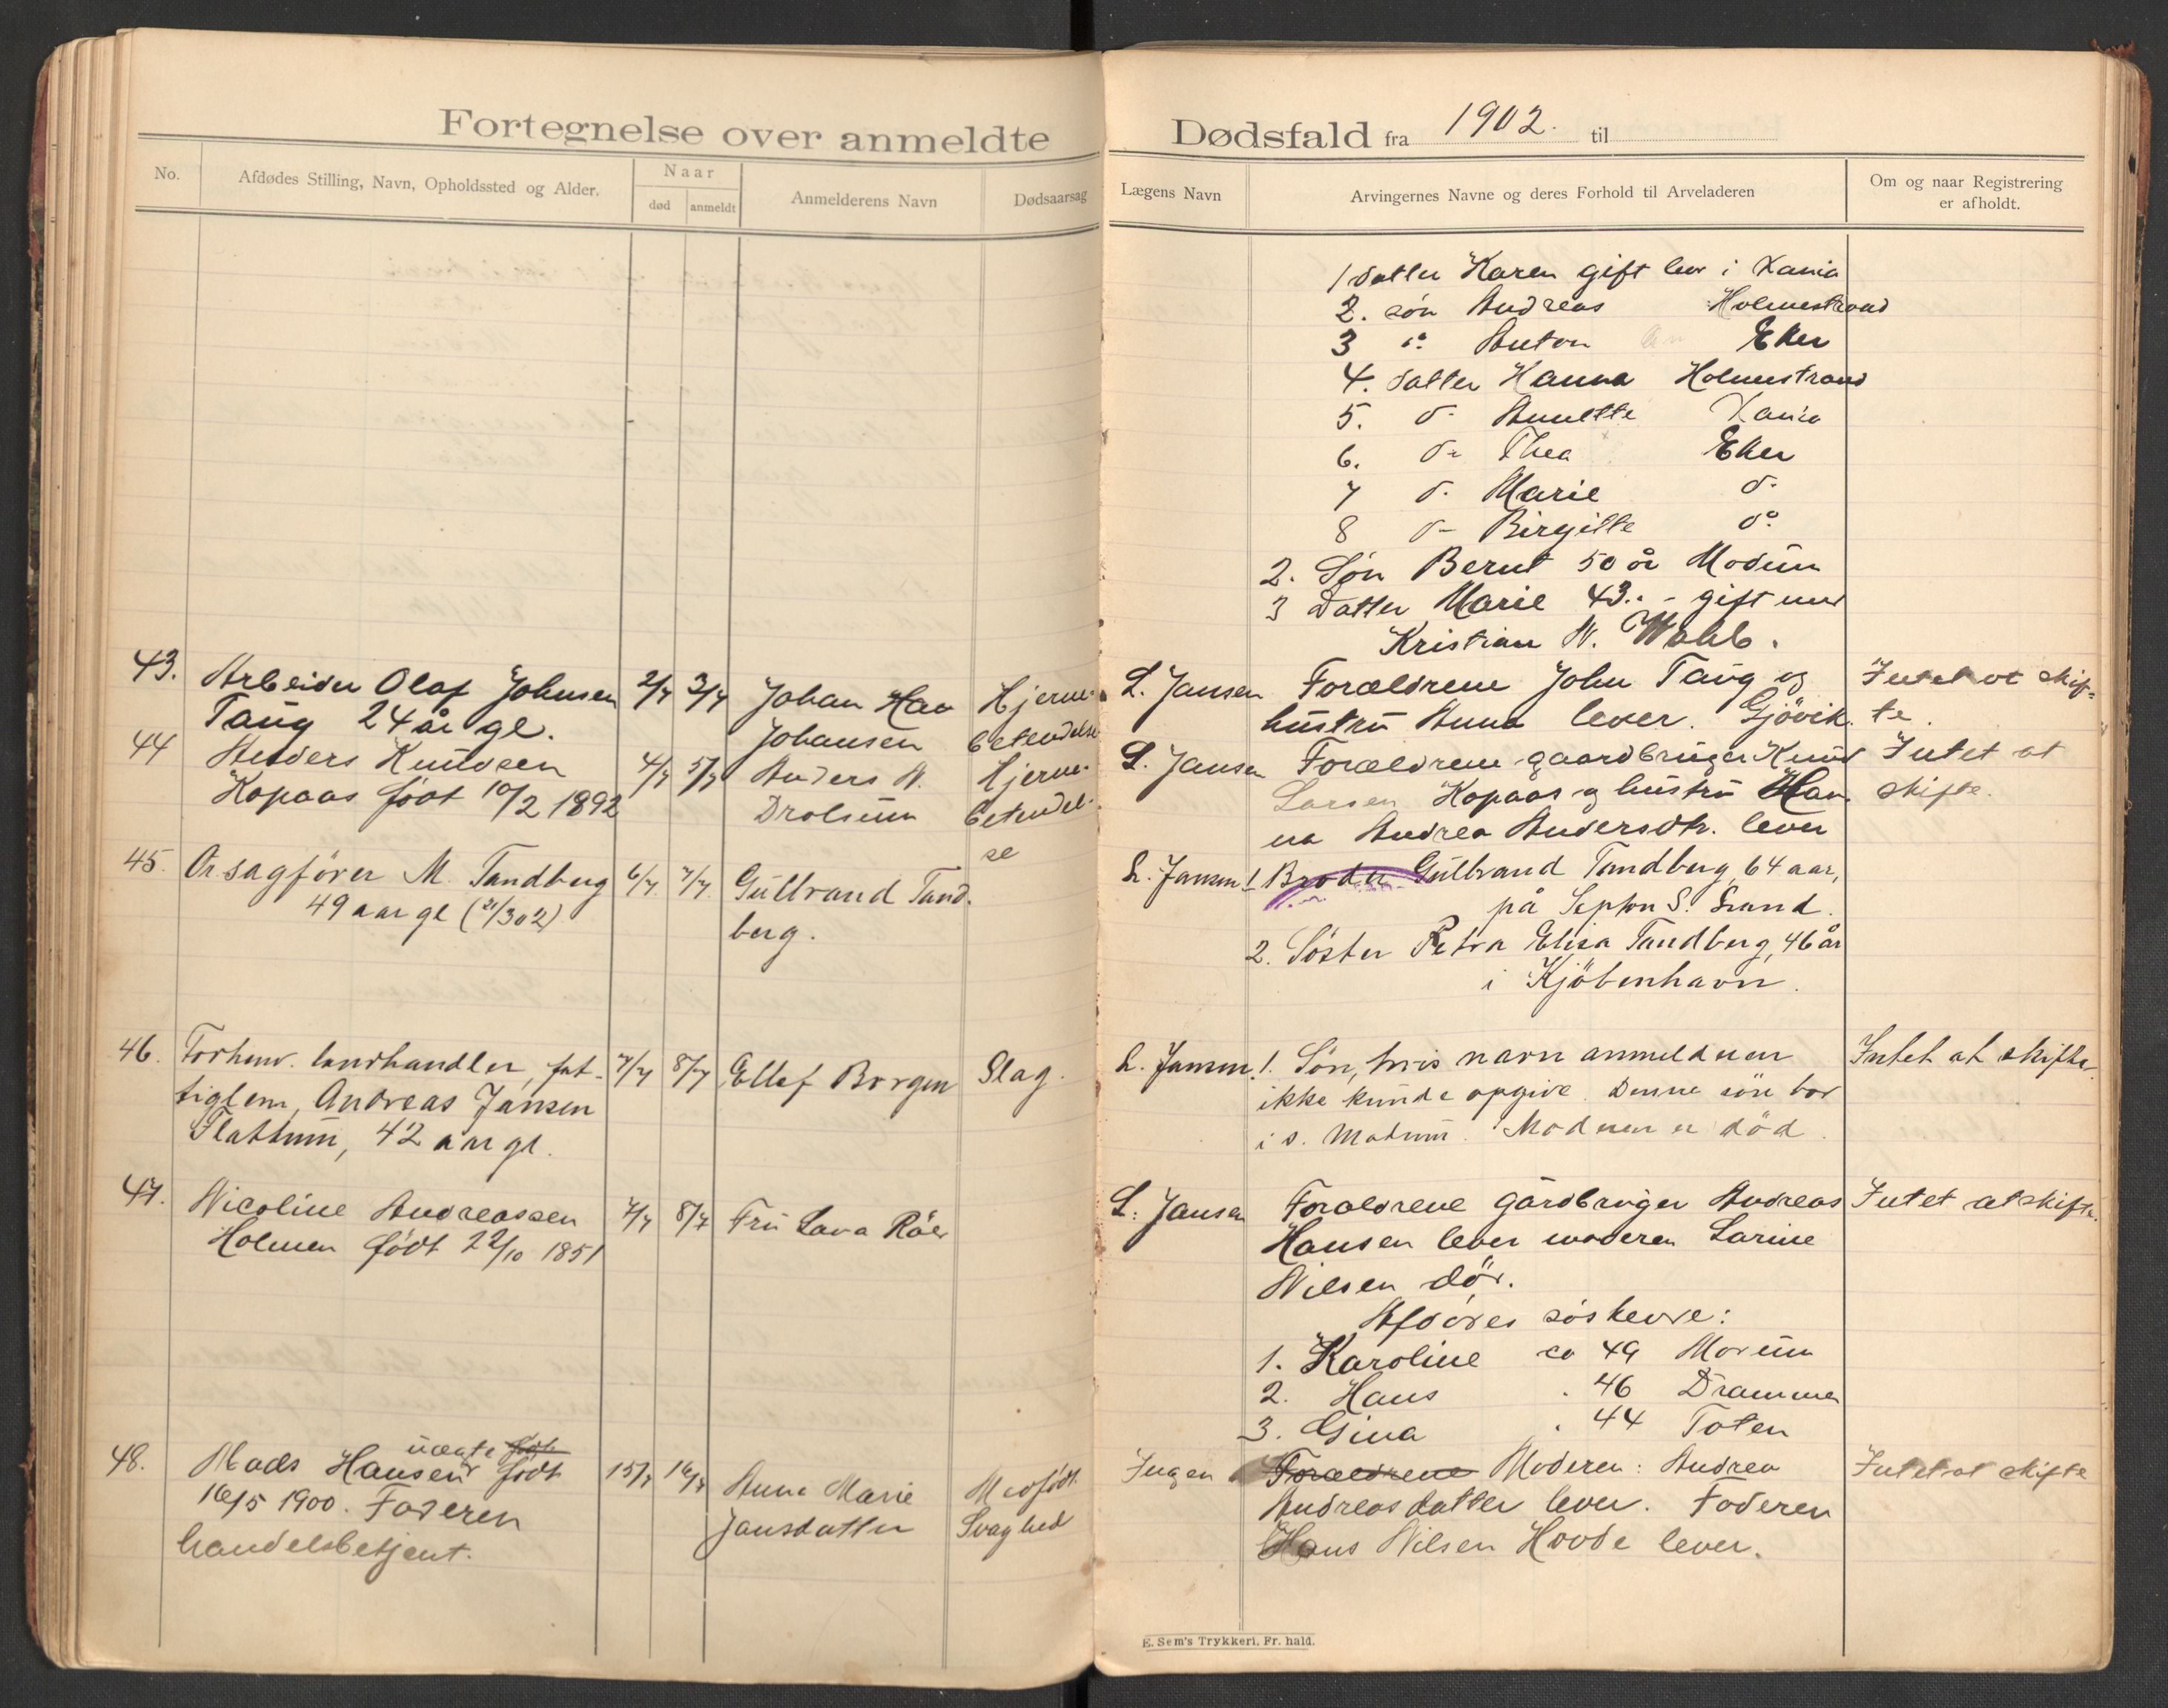 Fortegnelse over anmeldte
No.
Afdødes Stilling, Navn, Opholdssted og Alder.
Naar
død
anmeldt
Anmelderens Navn
Dødsaarsag
43. Arbeider Olaf Johnsen 2/7 3/7 Johan Hav Hjerne-
Taug 24 år gl. Johansen betendelse
44 Anders Knudsen 4/7 5/7 Anders N. Hjerne-
Kopaas født 10/2 1892 Drolsum betendel-
se
45. Or.sagfører M. Tandberg 6/7. 7/7. Gulbrand Tand-
49 aar gl (21/3 02) berg.
46. Forhenv. landhandler, fat- 7/7 8/7 Ellef Borgen Slag.
tiglem, Andreas Jansen
Flattum, 42 aar gl.
47. Nicoline Andreassen 7/7 8/7 Fru Lava Råer
Holmen født 22/10 1851
uægte født
48. Mads Hansen født 15/7 16/7 Anne Marie Medfødt
16/5 1900. Faderen Jansdatter Svaghed
handelsbetjent.
Dødsfald fra 1902. til
Lægens Navn
Arvingernes Navne og deres Forhold til Arveladeren
Om og naar Registrering
er afholdt.
1 datter Karen gift lever i Xania
2. søn Andreas Holmestrand
3 do Anton Eker
4. datter Hanna Holmestrand
5. d- Anette Xania
6. d- Thea Eker
7 d- Marie d-
8 d- Birgitte do
2. Søn Bernt 50 år Modum
3 Datter Marie 43 " - gift med
Kristian N. Wahlb.
L. Jansen Forældrene John Taug og Intet at skif-
hustru Anna lever. Gjøvik. te.
L. Jansen Forældrene gaardbruger Knud Intet at
Larsen Kopaas og hustru Han- skifte.
na Andrea Andersdtr. lever
L. Jansen 1 Broder Gulbrand Tandberg, 64 aar,
på S. Sand.
2. Søster Petra Elisa Tandberg, 46 år
i Kjøbenhavn.
L. Jansen. 1. Søn, hvis navn anmelderen Intet at skifte.
ikke kunde opgive. Denne søn bor
i s. Modum. Moderen er død.
L. Jansen Forældrene gårdbruger Andreas Intet at skifte.
Hansen lever moderen Larine
Nilsen død.
Afdødes søskende:
1. Karoline ca 49 Modum
2. Hans " 46 Drammen
3. Gina " 44 Toten
Ingen Forældrene Moderen: Andrea Intet at skifte
Andreasdatter lever. Faderen
Hans Nilsen Hovde lever.
E. Sem's Trykkeri. Fr. hald.